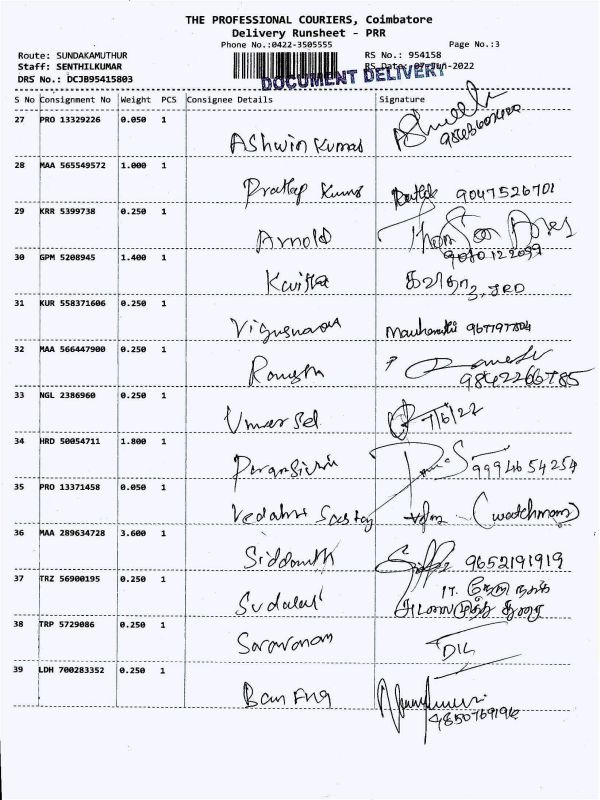 THE PROFESSIONAL COURIERS, Coimbatore
Delivery Runsheet - PRR
Phone No.:0422-3505555 Page No.:3
Route: SUNDAKAMUTHUR RS No.: 954158
Staff: SENTHILKUMAR RS Date: 07-Jun-2022
DRS No.: DCJB95415803
DOCUMENT DELIVERY
S No Consignment No Weight PCS Consignee Details Signature
27 PRO 13329226 0.050 1 Ashwin Kumar
28 MAA 565549572 1.000 1 Prathap Kumar 9047526701
29 KRR 5399738 0.250 1 Arnold
30 GPM 5208945 1.400 1 Kavitha கவிதா
31 KUR 558371606 0.250 1
32 MAA 566447900 0.250 1 Ramesh 9842266785
33 NGL 2386960 0.250 1 7/6/22
34 HRD 50054711 1.800 1 9994654254
35 PRO 13371458 0.050 1 (watchman)
36 MAA 289634728 3.600 1 Siddarth 9652191919
37 TRZ 56900195 0.250 1
38 TRP 5729086 0.250 1 Saravanan
39 LDH 700283352 0.250 1